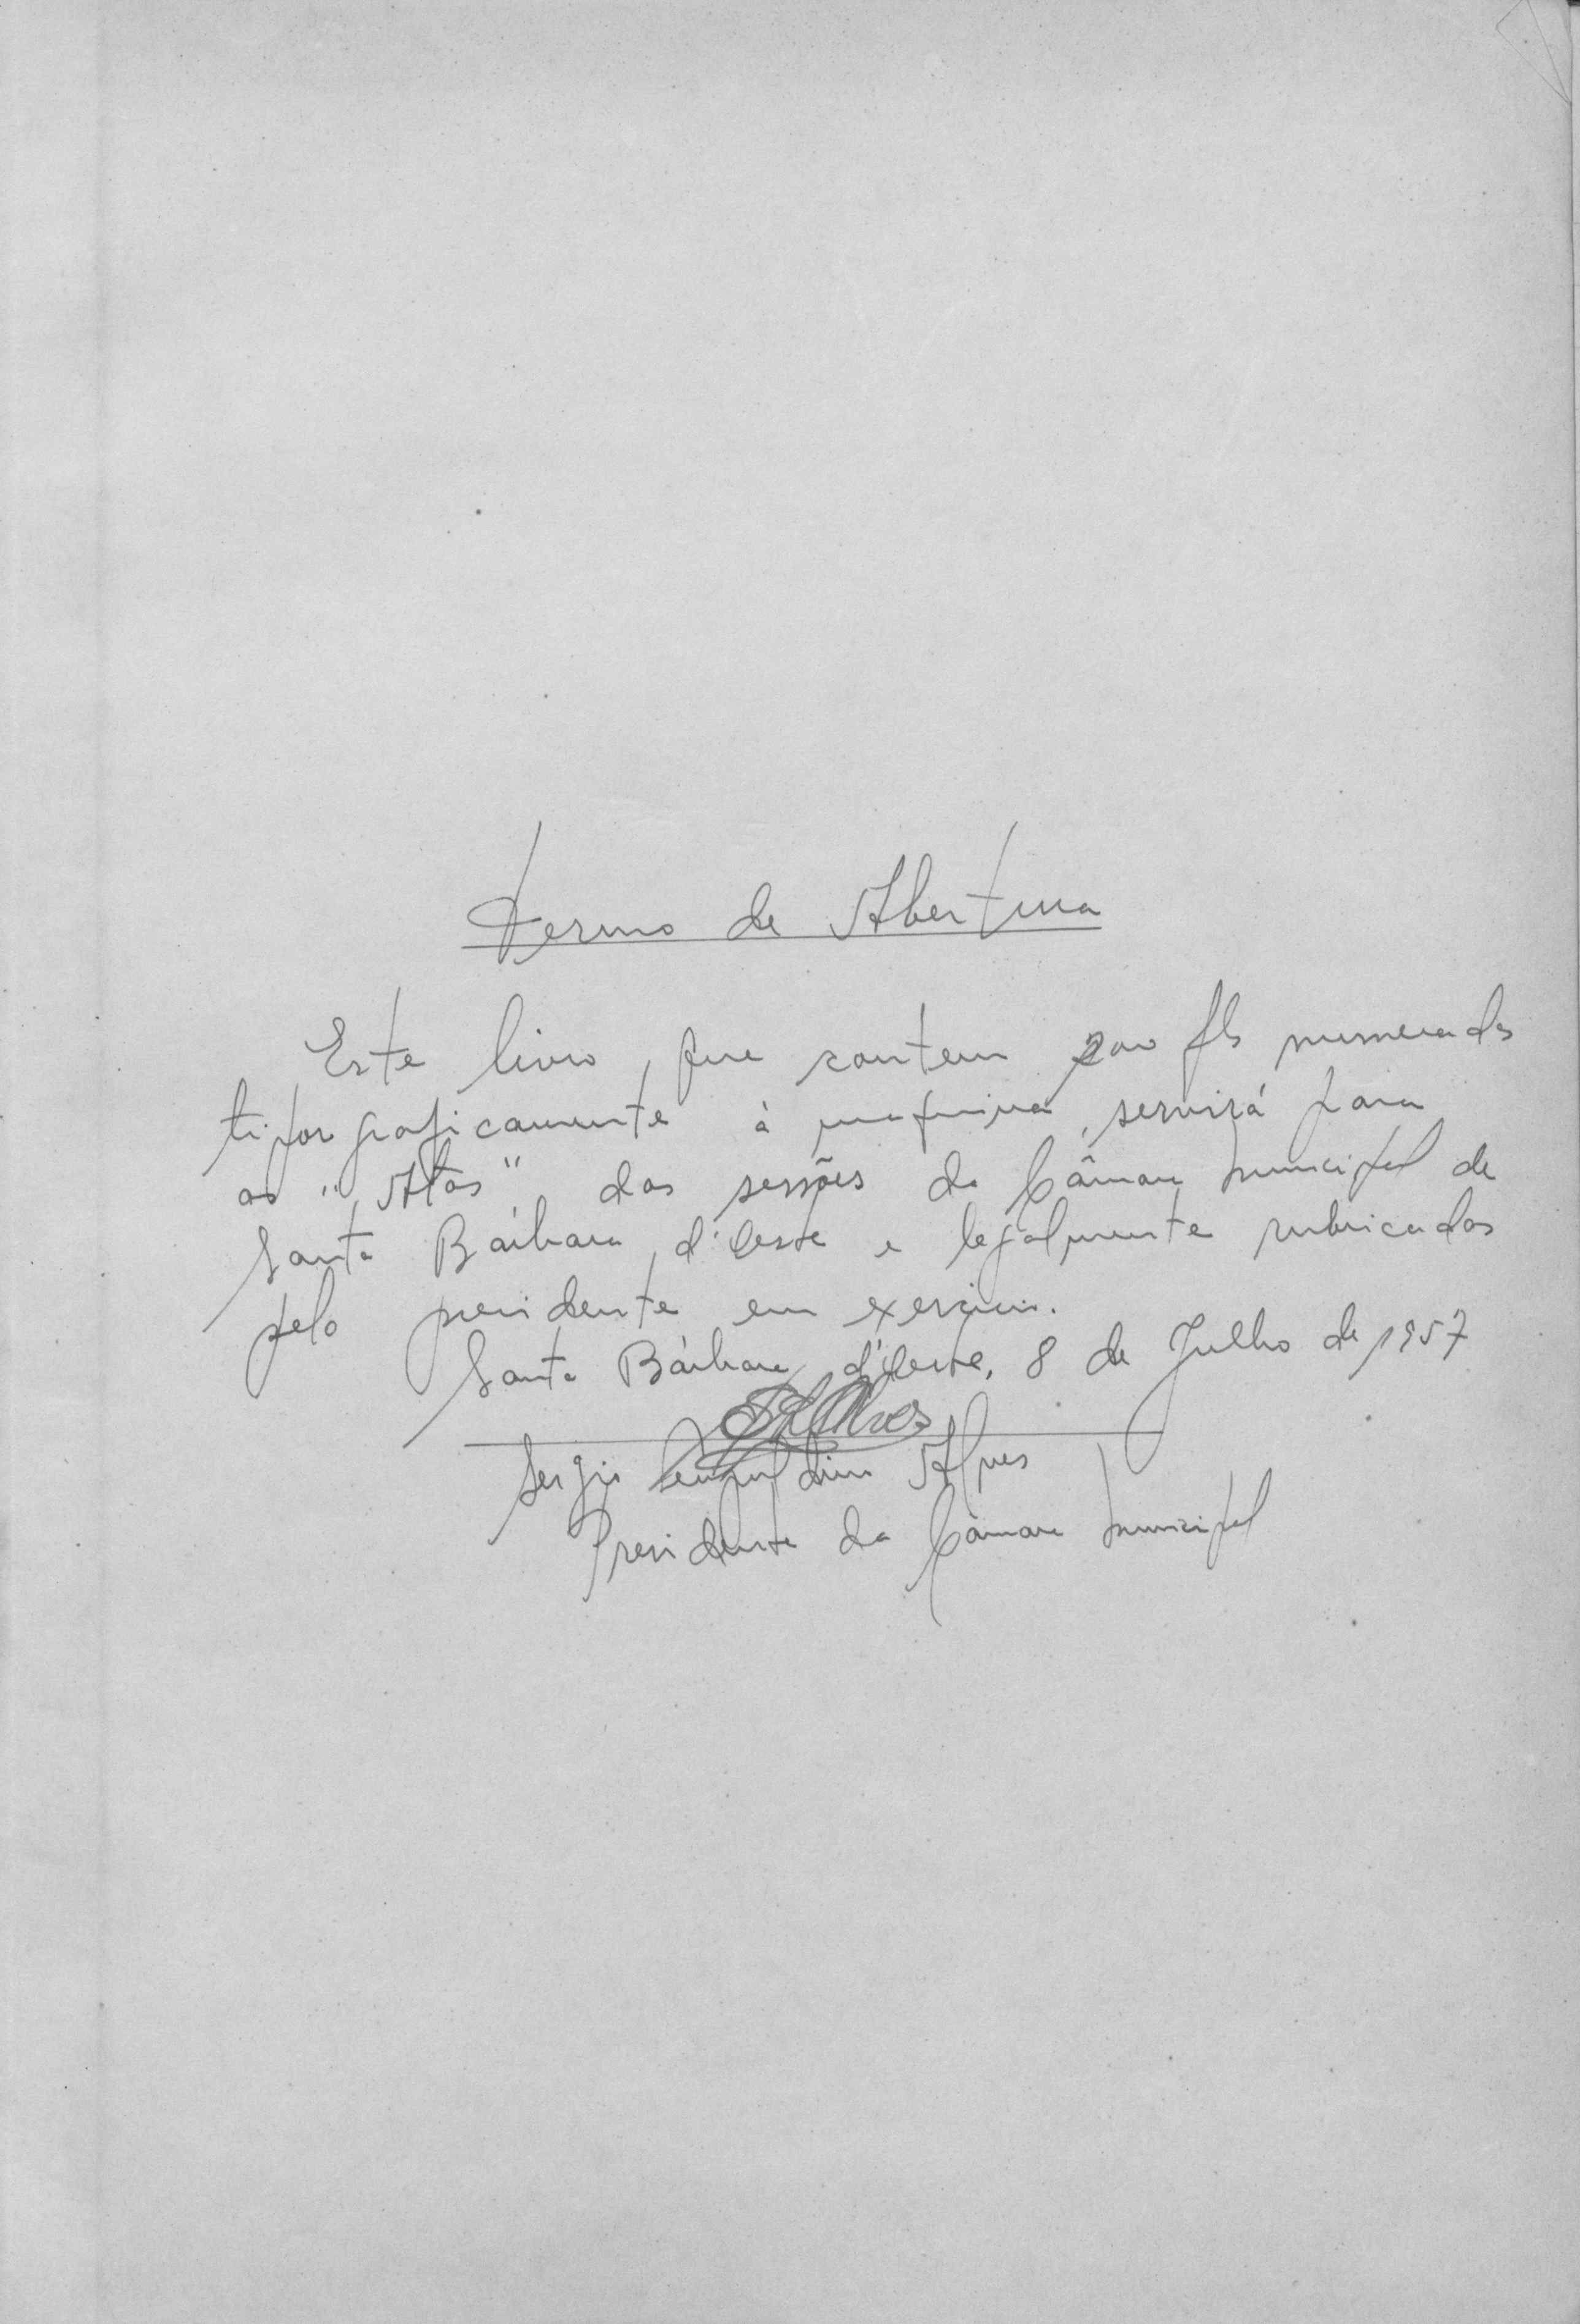 Termo de Abertura
Este livro, que contem 200 fls numeradas
tipograficamente à maquina, servirá para
as "Atas" das sessões da Câmara Municipal de
Santa Bárbara d'Oeste e legalmente rubricadas
pelo presidente em exercicio.
Santa Bárbara d'Oeste, 8 de Julho de 1957
Sergio Alves
Presidente da Câmara Municipal